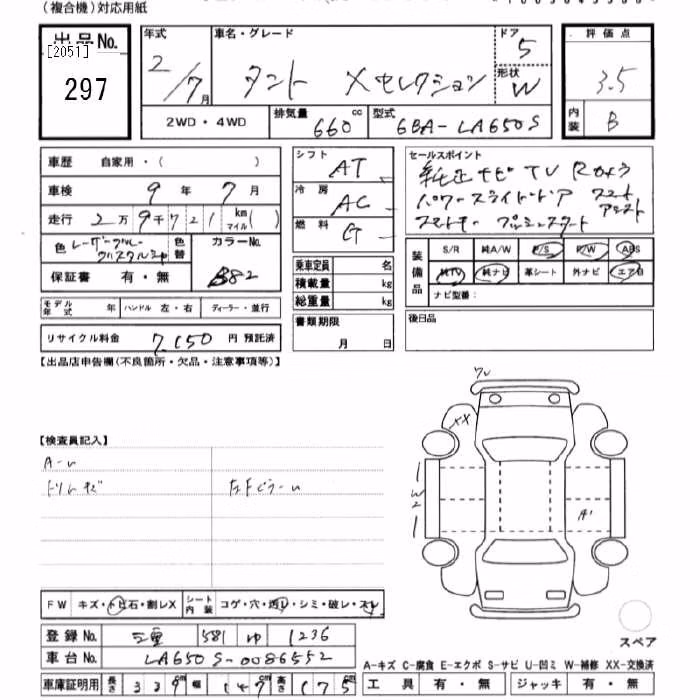 (複合機)対応用紙
出品No.
[2051]
297
年式
2/7月
車名・グレード
タント Xセレクション
ドア
5
形状
W
評価点
3.5
内装
B
2WD・4WD
排気量
660 cc
型式
6BA-LA650S
車歴 自家用・( )
車検 9年7月
走行 2万9千721 km マイル( )
色
色替
カラーNo.
B82
保証書 有・無
モデル年式 年 ハンドル 左・右 ディーラー・並行
リサイクル料金 7,150 円 預託済
シフト AT
冷房 AC
燃料 G
乗車定員 名
積載量 kg
総重量 kg
書類期限
月 日
セールスポイント
純正ナビ TV Rカメラ
パワースライドドア スマートアシスト
スマートキー プッシュスタート
装備品
S/R 純A/W P/S P/W ABS
純TV 純ナビ 革シート 外ナビ エアB
ナビ型番:
後日品
【出品店申告欄(不良箇所・欠品・注意事項等)】
【検査員記入】
A-U
トリムキズ
XX
W2
A1
FW キズ・トビ石・割レX シート内装 コゲ・穴・透レ・シミ・破レ・スレ
スペア
登録No. 三重 581 ゆ 1236
車台No. LA650S-0086552
A-キズ C-腐食 E-エクボ S-サビ U-凹ミ W-補修 XX-交換済
車庫証明用 長さ 339 幅 147 高さ 175
工具 有・無 ジャッキ 有・無